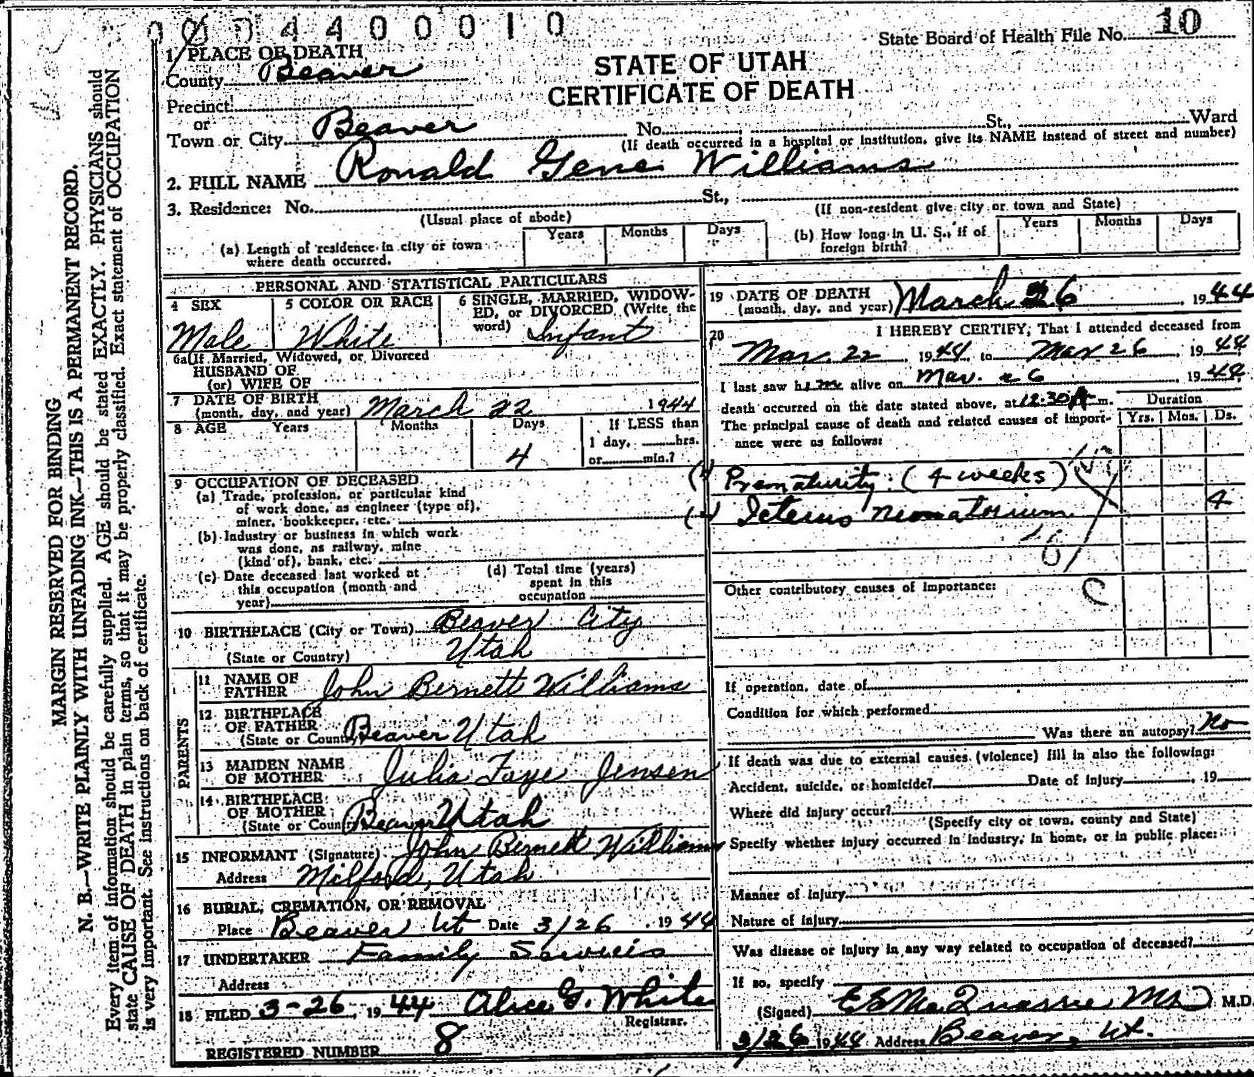 0004400010
State Board of Health File No. 10
1 PLACE OF DEATH
County Beaver
STATE OF UTAH
CERTIFICATE OF DEATH
Precinct
or
Town or City Beaver No. St., Ward
(If death occurred in a hospital or institution, give its NAME instead of street and number)
2. FULL NAME Ronald Gene Williams
3. Residence: No. St.,
(Usual place of abode) (If non-resident give city or town and State)
(a) Length of residence in city or town where death occurred. Years Months Days
(b) How long in U. S., if of foreign birth? Years Months Days
PERSONAL AND STATISTICAL PARTICULARS
4 SEX Male
5 COLOR OR RACE White
6 SINGLE, MARRIED, WIDOW-
ED, or DIVORCED (Write the
word) Infant
6a If Married, Widowed, or Divorced
HUSBAND OF
(or) WIFE OF
7 DATE OF BIRTH
(month, day, and year) March 22 1944
8 AGE Years Months Days If LESS than
1 day, hrs.
4 or min.?
9 OCCUPATION OF DECEASED
(a) Trade, profession, or particular kind
of work done, as engineer (type of),
miner, bookkeeper, etc.
(b) Industry or business in which work
was done, as railway, mine
(kind of), bank, etc.
(c) Date deceased last worked at
this occupation (month and
year)
(d) Total time (years)
spent in this
occupation
10 BIRTHPLACE (City or Town) Beaver City
(State or Country) Utah
PARENTS
11 NAME OF
FATHER John Bernett Williams
12 BIRTHPLACE
OF FATHER
(State or Coun Beaver Utah
13 MAIDEN NAME
OF MOTHER Julia Faye Jensen
14 BIRTHPLACE
OF MOTHER
(State or Coun Beaver Utah
15 INFORMANT (Signature) John Bernett Williams
Address Milford, Utah
16 BURIAL, CREMATION, OR REMOVAL
Place Beaver Ut Date 3/26 1944
17 UNDERTAKER Family Serveis
Address
18 FILED 3-26, 1944 Alice G. White
Registrar.
REGISTERED NUMBER 8
19 DATE OF DEATH
(month, day, and year) March 26, 1944
20 I HEREBY CERTIFY, That I attended deceased from
Mar. 22, 1944, to Mar 26, 1944
I last saw him alive on Mar. 26 1944
death occurred on the date stated above, at 12:30 A m.
The principal cause of death and related causes of import-
ance were as follows:
Duration
Yrs. Mos. Ds.
(1) Prematurity (4 weeks)
(2) Icterus neonatorium 4
Other contributory causes of importance:
If operation, date of
Condition for which performed
Was there an autopsy? No
If death was due to external causes (violence) fill in also the following:
Accident, suicide, or homicide? Date of injury , 19
Where did injury occur?
(Specify city or town, county and State)
Specify whether injury occurred in industry, in home, or in public place:
Manner of injury
Nature of injury
Was disease or injury in any way related to occupation of deceased?
If so, specify
(Signed) M.D.
3/26 1944 Address Beaver, Ut.
MARGIN RESERVED FOR BINDING
N. B.—WRITE PLAINLY WITH UNFADING INK—THIS IS A PERMANENT RECORD.
Every item of information should be carefully supplied. AGE should be stated EXACTLY. PHYSICIANS should
state CAUSE OF DEATH in plain terms, so that it may be properly classified. Exact statement of OCCUPATION
is very important. See instructions on back of certificate.